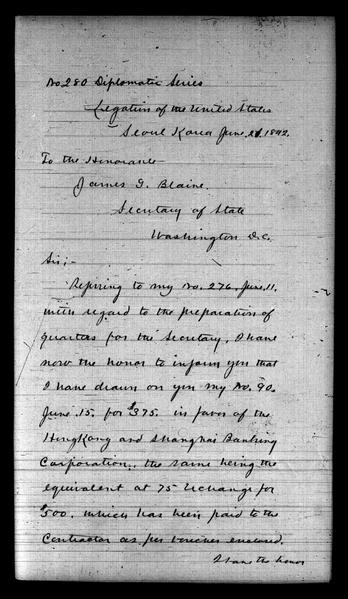 No 280 Diplomatic Series
Legation of the United States
Seoul Korea June 21. 1892.
To the Honorable
James G. Blaine.
Secretary of State
Washington D.C.
Sir;-
Refering to my No. 276. June. 11.
with regard to the preparation of
quarters for the Secretary, I have
now the honor to inform you that
I have drawn on you my No. 90.
June. 15. for $375. in favor of the
HongKong and Shanghai Banking
Corporation, the same being the
equivalent at 75 Exchange for
$500. which has been paid to the
Contractor as per voucher enclosed.
I have the honor